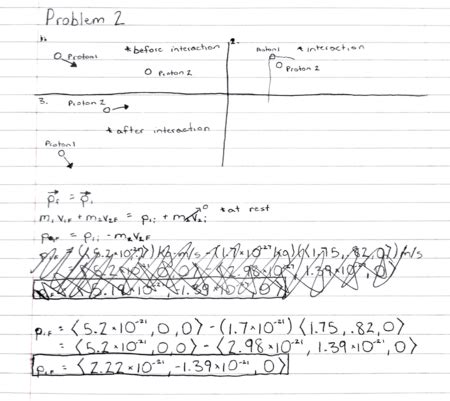 Problem 2
1. *before interaction
Proton 1
Proton 2
2. *interaction
Proton 1
Proton 2
3. Proton 2
*after interaction
Proton 1
p⃗f = p⃗i
m₁v₁F + m₂v₂F = p₁i + m₂v₂i 0 *at rest
p₁F = p₁i - m₂v₂F
p₁F = ⟨5.2×10⁻²¹, 0, 0⟩ - (1.7×10⁻²¹)⟨1.75, .82, 0⟩
= ⟨5.2×10⁻²¹, 0, 0⟩ - ⟨2.98×10⁻²¹, 1.39×10⁻²¹, 0⟩
p₁F = ⟨2.22×10⁻²¹, -1.39×10⁻²¹, 0⟩